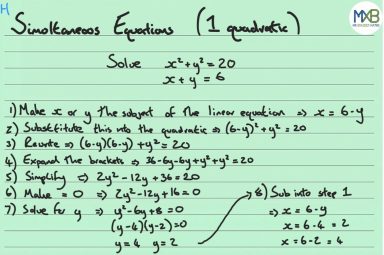 H
Simultaneous Equations (1 quadratic)
MXB
Solve x² + y² = 20
x + y = 6
1) Make x or y the subject of the linear equation ⇒ x = 6 - y
2) Substitute this into the quadratic ⇒ (6-y)² + y² = 20
3) Rewrite ⇒ (6-y)(6-y) + y² = 20
4) Expand the brackets ⇒ 36-6y-6y+y²+y² = 20
5) Simplify ⇒ 2y² - 12y + 36 = 20
6) Make = 0 ⇒ 2y² - 12y + 16 = 0
7) Solve for y ⇒ y² - 6y + 8 = 0
(y-4)(y-2) = 0
y = 4 y = 2
8) Sub into step 1
⇒ x = 6 - y
x = 6 - 4 = 2
x = 6 - 2 = 4